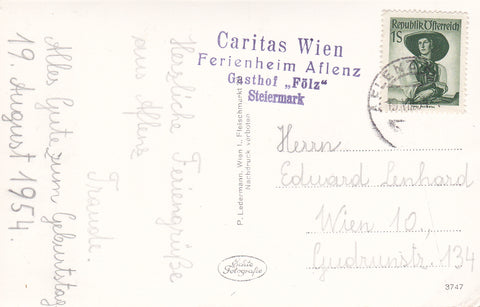 Alles Gute zum Geburtstag
19. August 1954.
Herzliche Feriengrüße
aus Aflenz
Traude.
Caritas Wien
Ferienheim Aflenz
Gasthof „Fölz"
Steiermark
P. Ledermann, Wien I., Fleischmarkt
Nachdruck verboten
Republik Österreich
1S
AFLENZ
Herrn
Eduard Lenhard
Wien 10.,
Gudrunstr. 134
Echte
Fotografie
3747